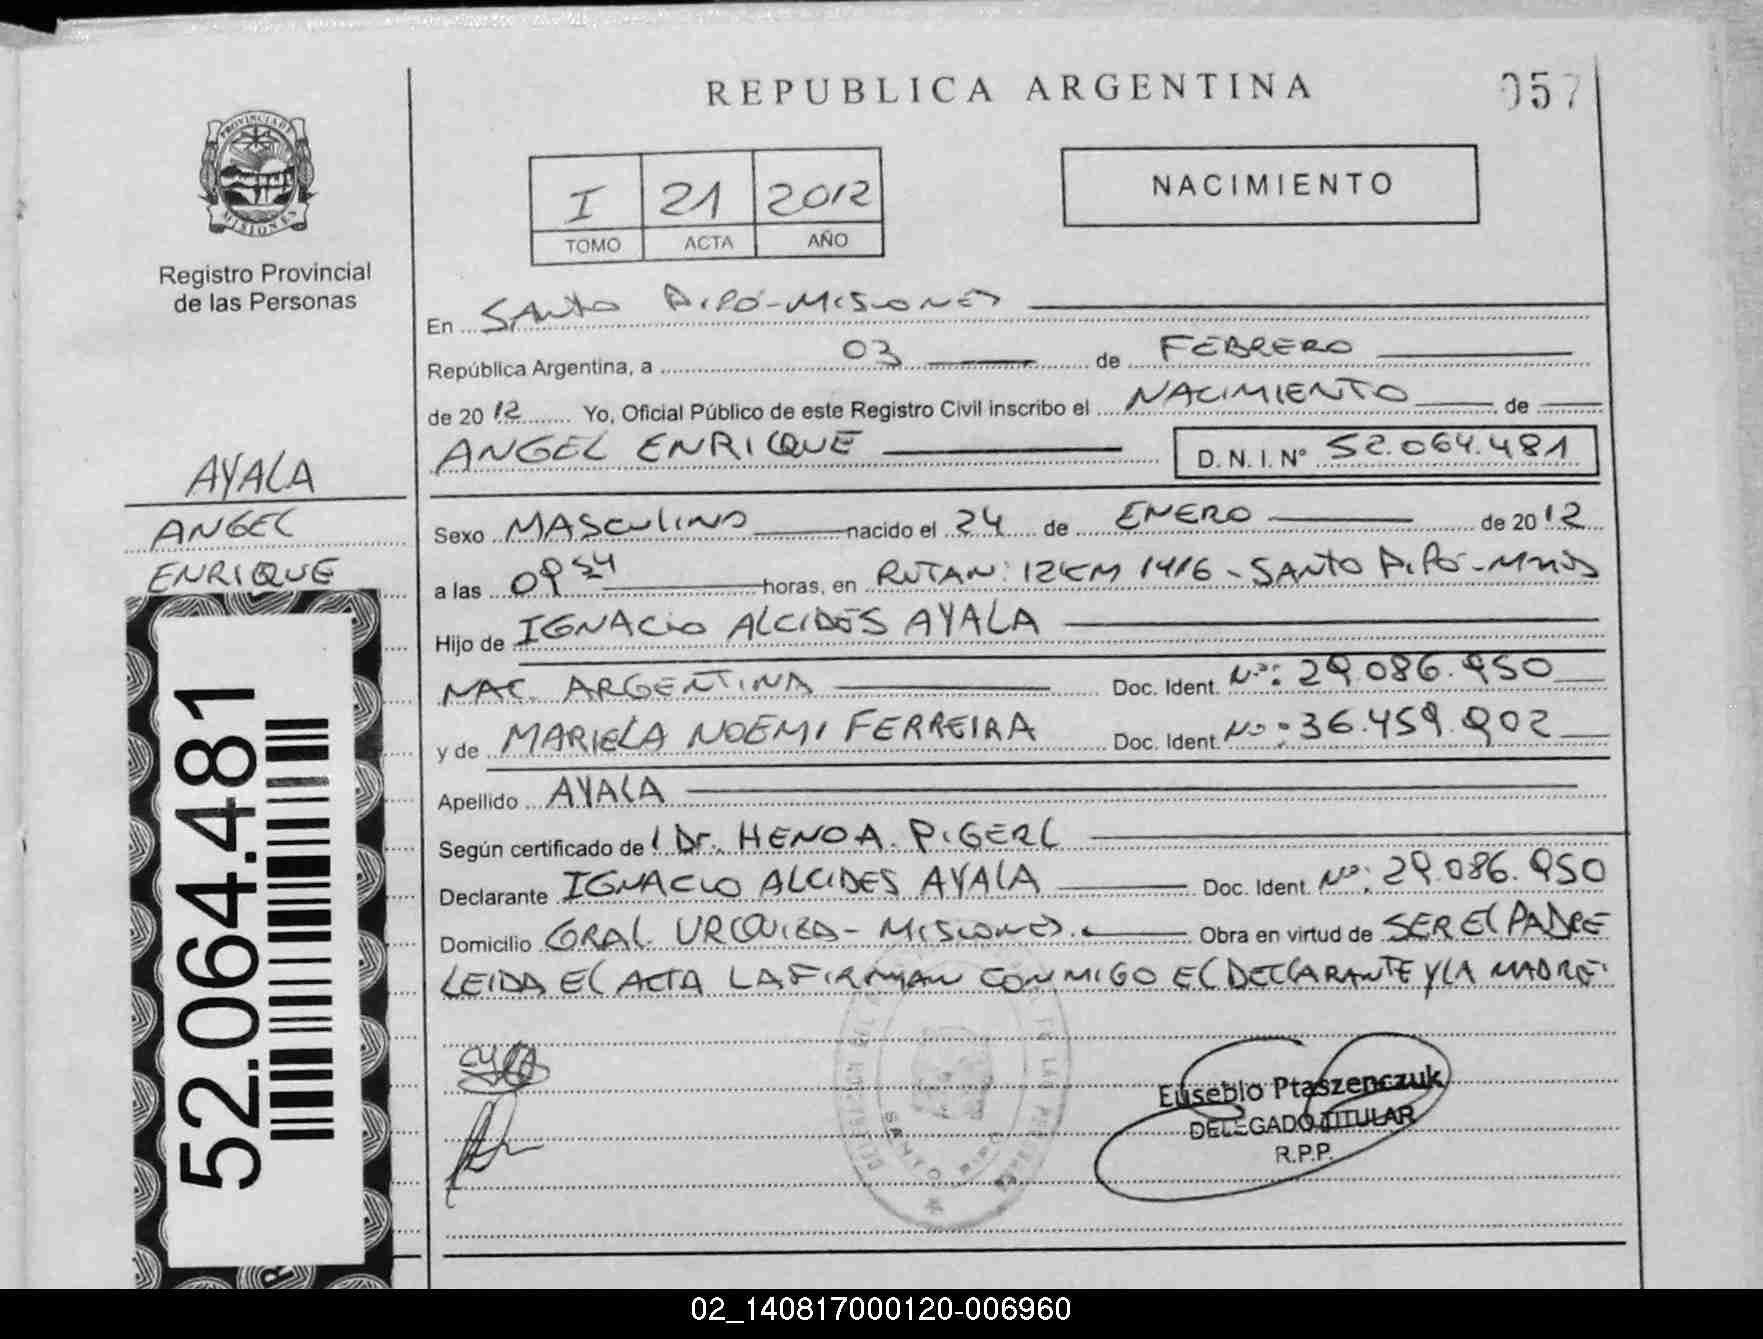 REPUBLICA ARGENTINA
057
PROVINCIA DE
MISIONES
Registro Provincial
de las Personas
I 21 2012
TOMO ACTA AÑO
NACIMIENTO
En Santo Pipó-Misiones
República Argentina, a 03 de FEBRERO
de 2012 Yo, Oficial Público de este Registro Civil inscribo el NACIMIENTO de
ANGEL ENRIQUE D.N.I. Nº 52.064.481
AYALA
ANGEL
ENRIQUE
Sexo MASCULINO nacido el 24 de ENERO de 2012
a las 09 54 horas, en RUTA N: 12 KM 1416 - SANTO PIPÓ - Mnes
Hijo de IGNACIO ALCIDES AYALA
NAC. ARGENTINA Doc. Ident. Nº: 29.086.950
y de MARIELA NOEMI FERREIRA Doc. Ident. Nº: 36.459.902
Apellido AYALA
Según certificado de l Dr. HENO A. PIGERL
Declarante IGNACIO ALCIDES AYALA Doc. Ident. Nº: 29.086.950
Domicilio GRAL. URQUIZA - MISIONES. Obra en virtud de SER EL PADRE
LEIDA EL ACTA LA FIRMAN CONMIGO EL DECLARANTE Y LA MADRE.
52.064.481
SANTO PIPO
Eusebio Ptaszenczuk
DELEGADO TITULAR
R.P.P.
02_140817000120-006960